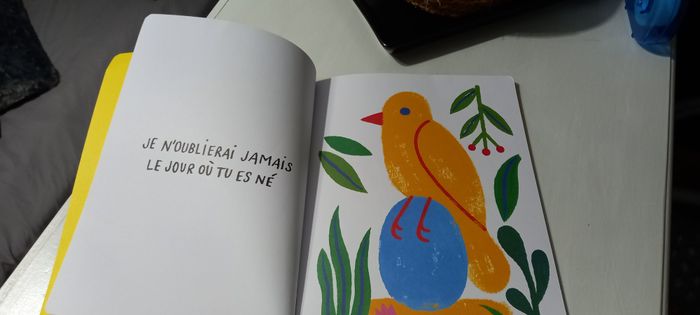 JE N'OUBLIERAI JAMAIS
LE JOUR OÙ TU ES NÉ